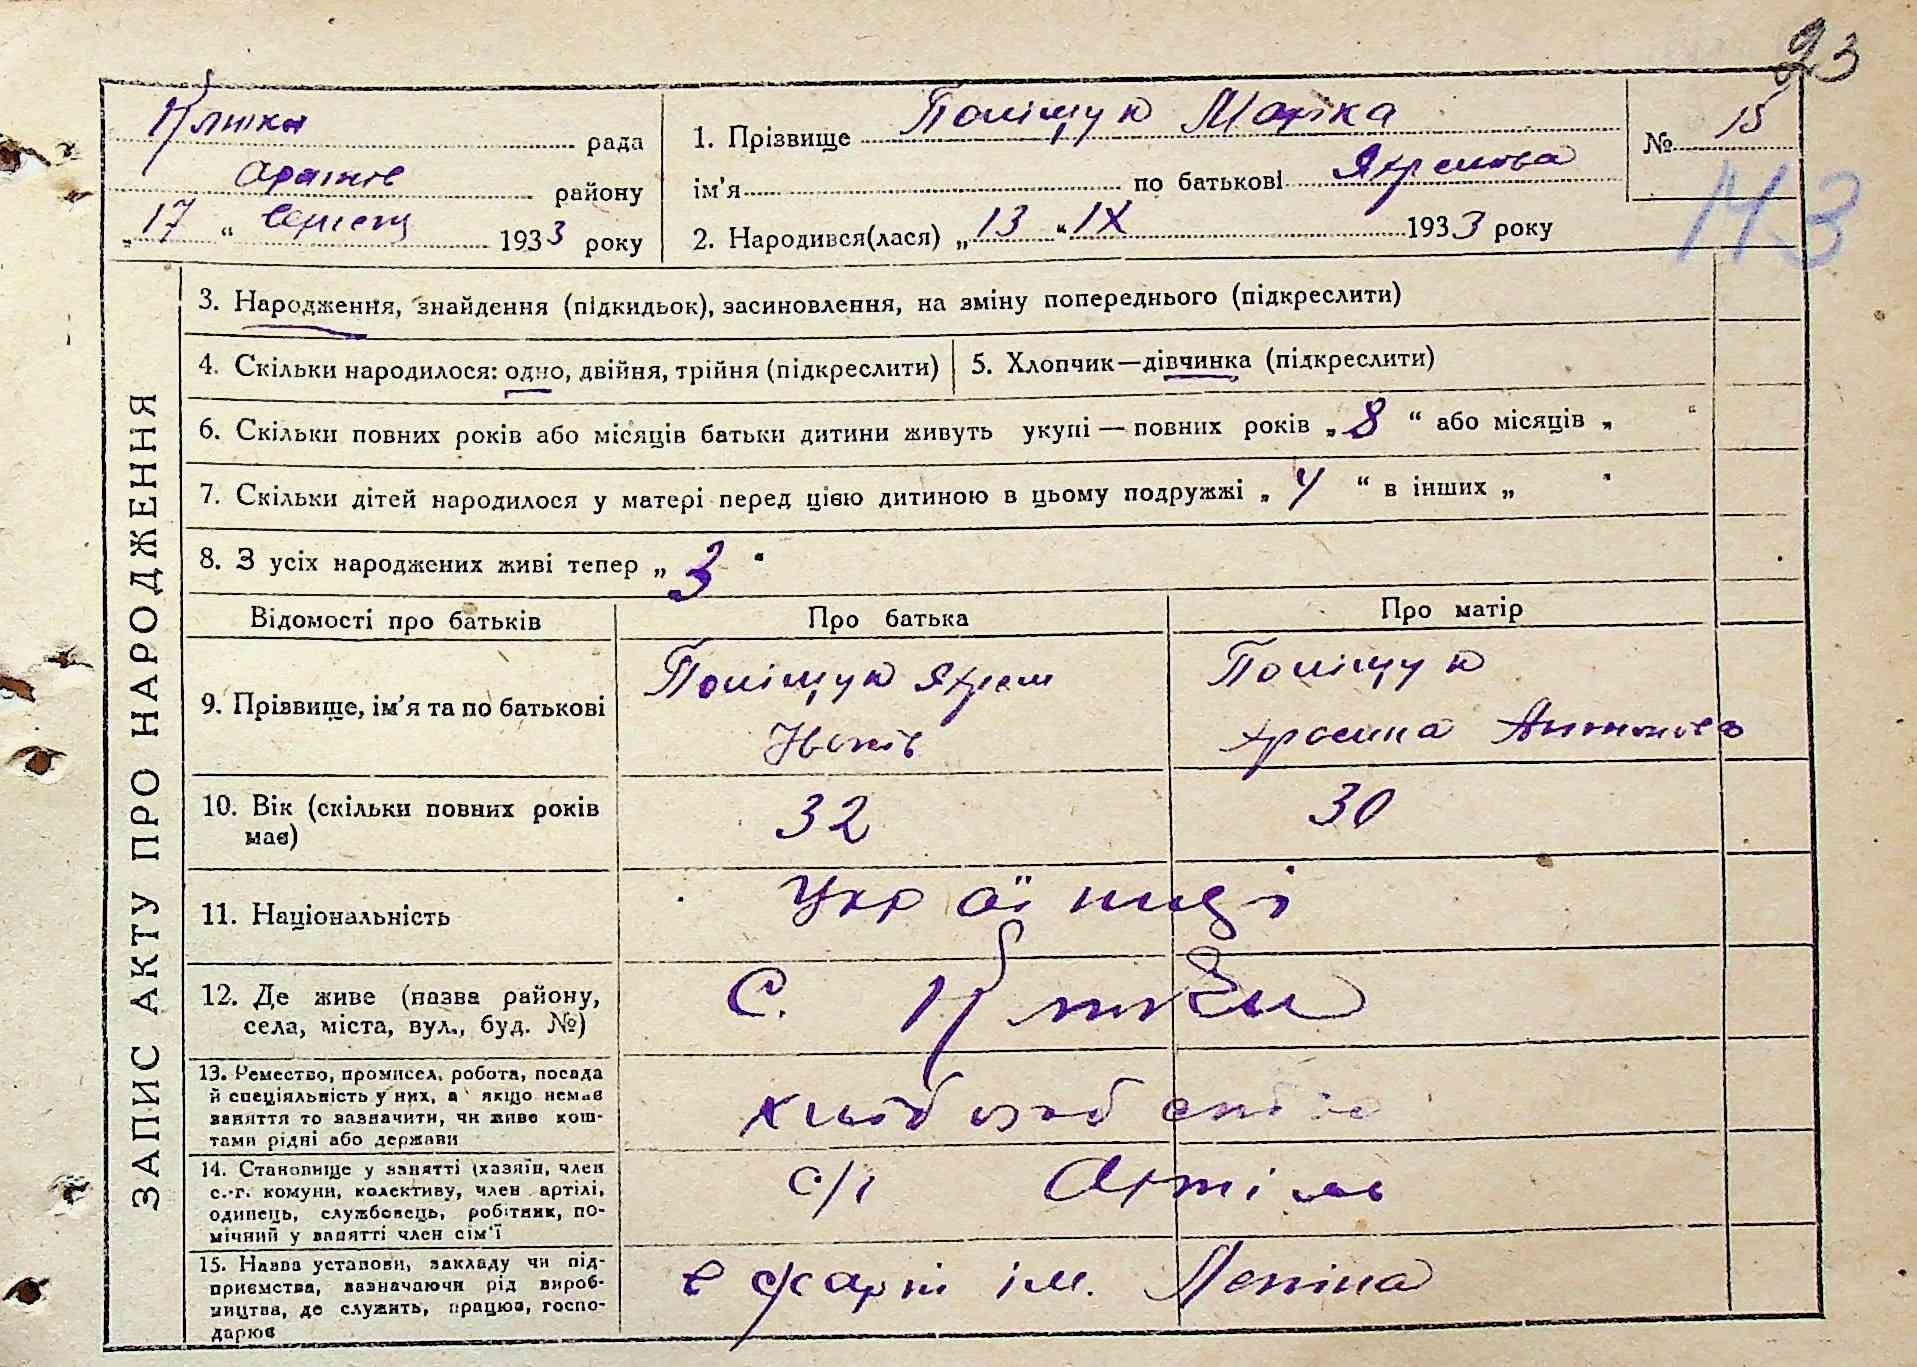 93
рада
1. Прізвище Поліщук Марика
№ 15
району
ім'я по батькові Яхремова
„17“ 1933 року
2. Народився(лася) „13“ IX 1933 року
113
ЗАПИС АКТУ ПРО НАРОДЖЕННЯ
3. Народження, знайдення (підкидьок), засиновлення, на зміну попереднього (підкреслити)
4. Скільки народилося: одно, двійня, трійня (підкреслити)
5. Хлопчик—дівчинка (підкреслити)
6. Скільки повних років або місяців батьки дитини живуть укупі — повних років „8“ або місяців „ “
7. Скільки дітей народилося у матері перед цією дитиною в цьому подружжі „4“ в інших „ “
8. З усіх народжених живі тепер „3“
Відомості про батьків Про батька Про матір
9. Прізвище, ім'я та по батькові
Поліщук Яхрем
Іванів
Поліщук
Хросина Антонів
10. Вік (скільки повних років
має)
32 30
11. Національність Українці
12. Де живе (назва району,
села, міста, вул., буд. №)
С.
13. Ремество, промисел, робота, посада
й спеціяльність у них, а якщо немає
заняття то зазначити, чи живе кош-
тами рідні або держави
хлібороб
14. Становище у занятті (хазяїн, член
с.-г. комуни, колективу, член артілі,
одинець, службовець, робітник, по-
мічний у занятті член сім'ї
с/г Артіль
15. Назва установи, закладу чи під-
приємства, вазначаючи рід вироб-
ництва, де служить, працює, госпо-
дарює
в с/х арті ім. Леніна